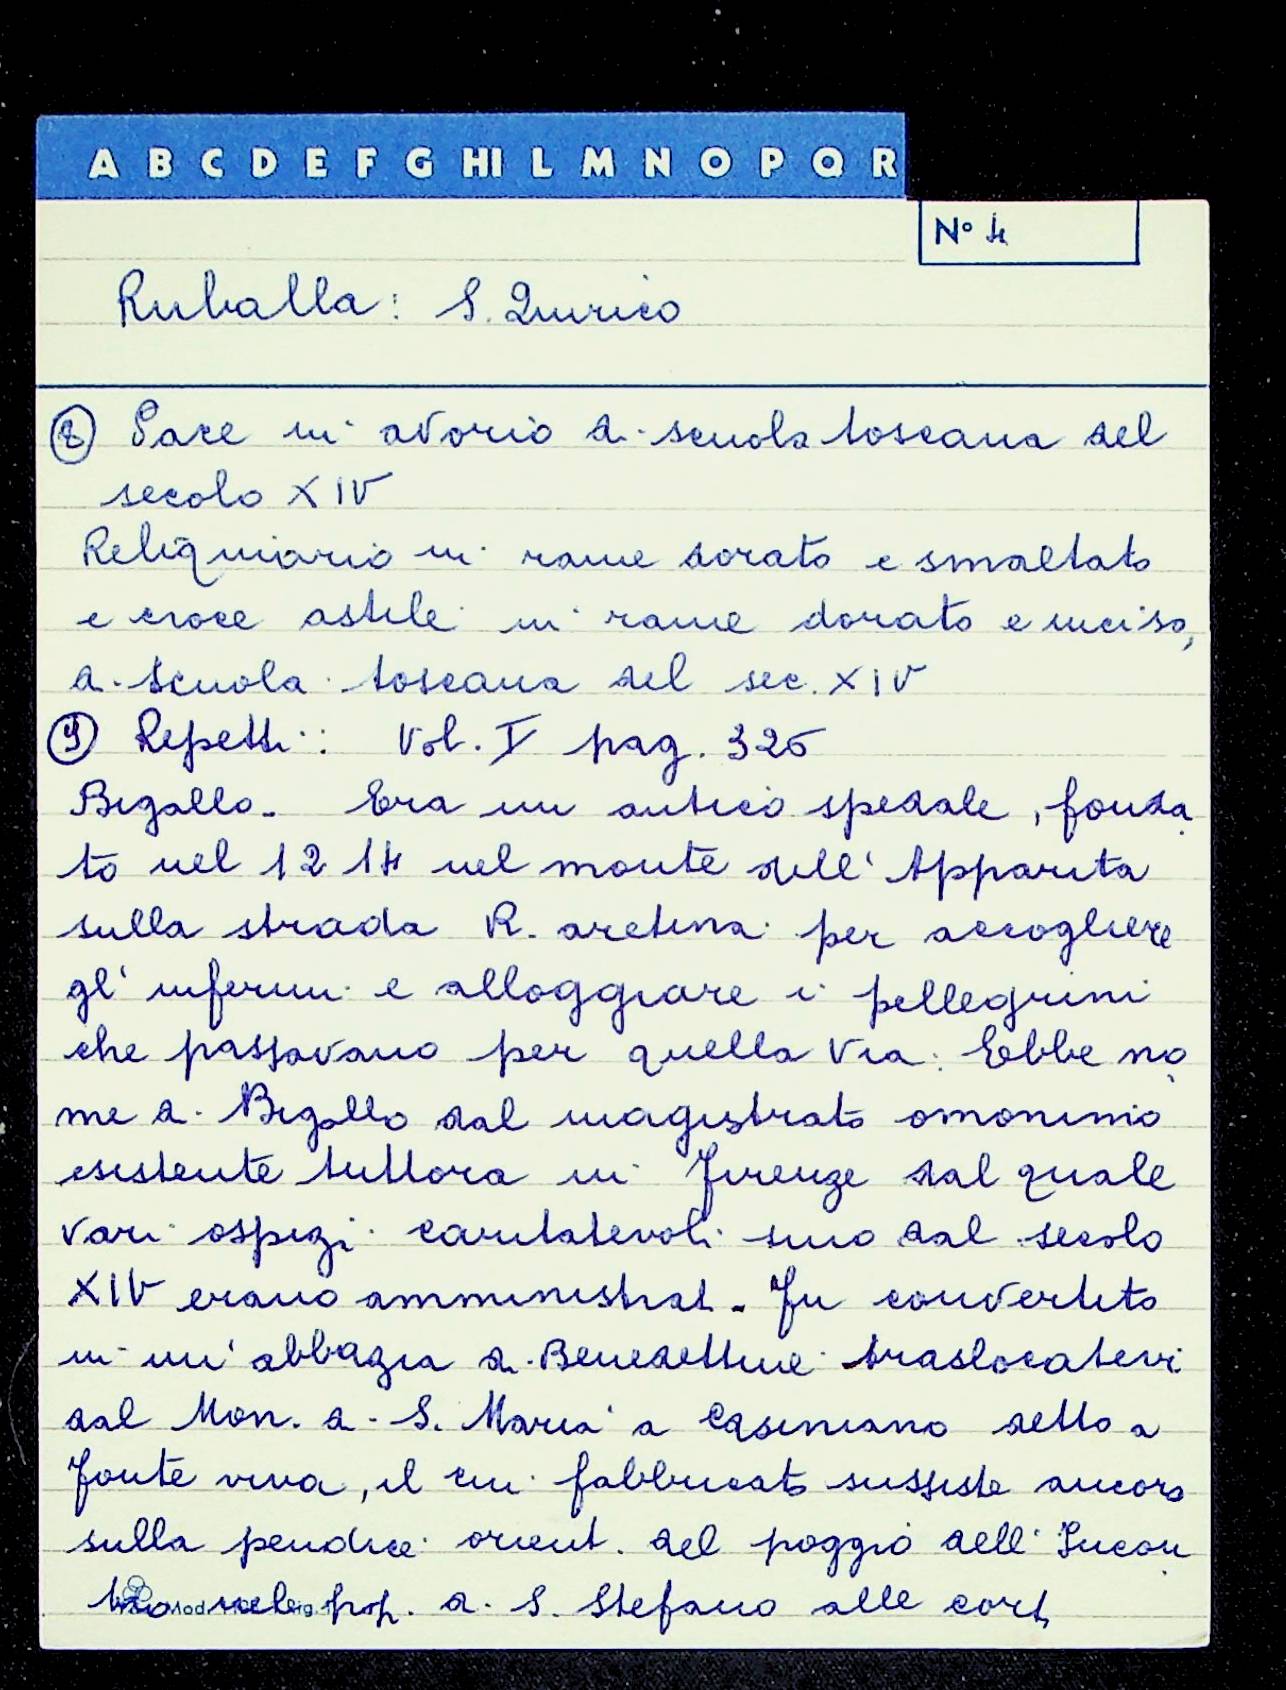 A B C D E F G HI L M N O P Q R
N° 4
Ruballa: S. Quirico
⑧ Pace in avorio di scuola toscana del
secolo XIV
Reliquiario in rame dorato e smaltato
e croce astile in rame dorato e inciso,
di scuola toscana del sec. XIV
⑨ Repetti: Vol. V pag. 326
Bigallo. Era un antico spedale, fonda
to nel 1214 nel monte dell'Apparita
sulla strada R. aretina per accogliere
gl'infermi e alloggiare i pellegrini
che passavano per quella via. Ebbe no
me di Bigallo dal magistrato omonimo
esistente tuttora in Firenze dal quale
vari ospizi caritatevoli sino dal secolo
XIV erano amministrati. Fu convertito
in un'abbazia di Benedettine traslocatevi
dal Mon. di S. Maria a Casiniano detto a
Fonte viva, il cui fabbricato sussiste ancora
sulla pendice orient. del poggio dell'Incon
tro nel pop. di S. Stefano alle corti